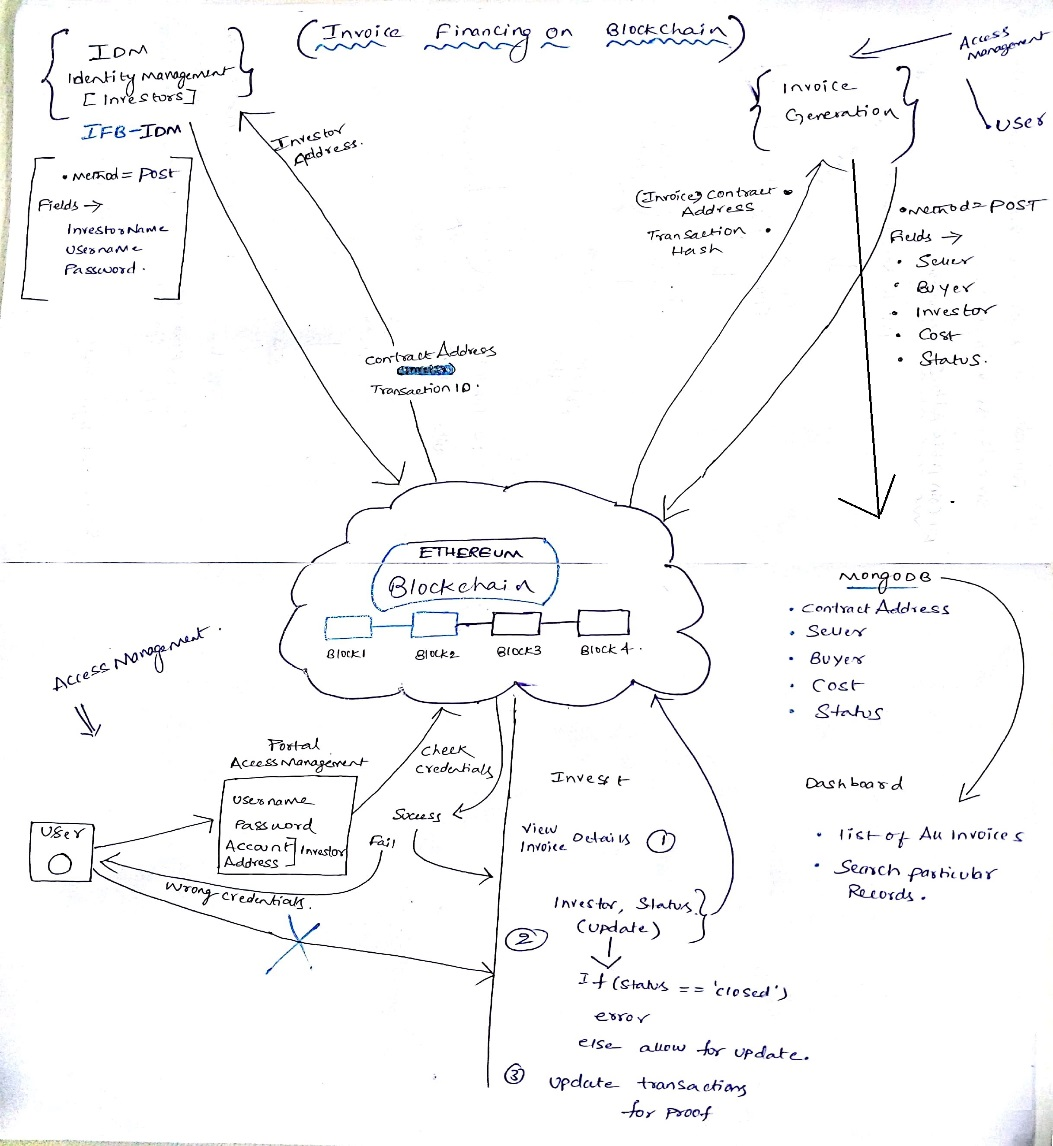 (Invoice Financing on Blockchain)
IDM
Identity Management
[Investors]
IFB-IDM
• Method = POST
Fields →
InvestorName
Username
Password.
Investor
Address.
Contract Address
Transaction ID.
Access
Management
User
Invoice
Generation
(Invoice) Contract •
Address
Transaction •
Hash
• Method = POST
Fields →
• Seller
• Buyer
• Investor
• Cost
• Status.
ETHEREUM
Blockchain
Block1
Block2
Block3
Block 4.
MongoDB
• Contract Address
• Seller
• Buyer
• Cost
• Status
Dashboard
• list of All Invoices
• Search particular
Records.
Access Management.
Portal
Access Management
Username
Password
Account ] Investor
Address
User
Check
Credentials
Success
Fail
Wrong credentials.
Invest
View
Invoice Details ①
② Investor, Status
(update)
If (status == 'closed')
error
else allow for update.
③ Update transactions
for proof